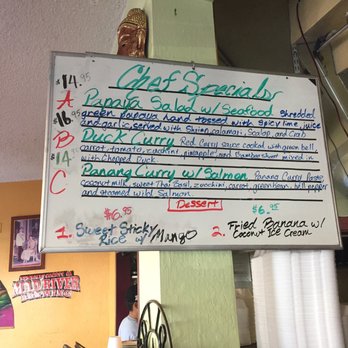 Chef Specials
$14.95
A Papaya Salad w/ Seafood shredded
green papaya hand tossed with spicy lime juice
and garlic, served with Shrimp, calamari, Scallop, and Crab
$16.95
B Duck Curry Red Curry sauce cooked with green bell,
carrot, tomato, zucchini, pineapple, and Bamboo shoot mixed in
with Chopped Duck
$14.95
C Panang Curry w/ Salmon Panang Curry
coconut milk, sweet Thai Basil, zucchini, carrot, green bean, bell pepper
and steamed wild Salmon.
Dessert
$6.95
$6.95
1. Sweet Sticky
Rice w/ Mango
2. Fried Banana w/
Coconut Ice Cream
MAD RIVER